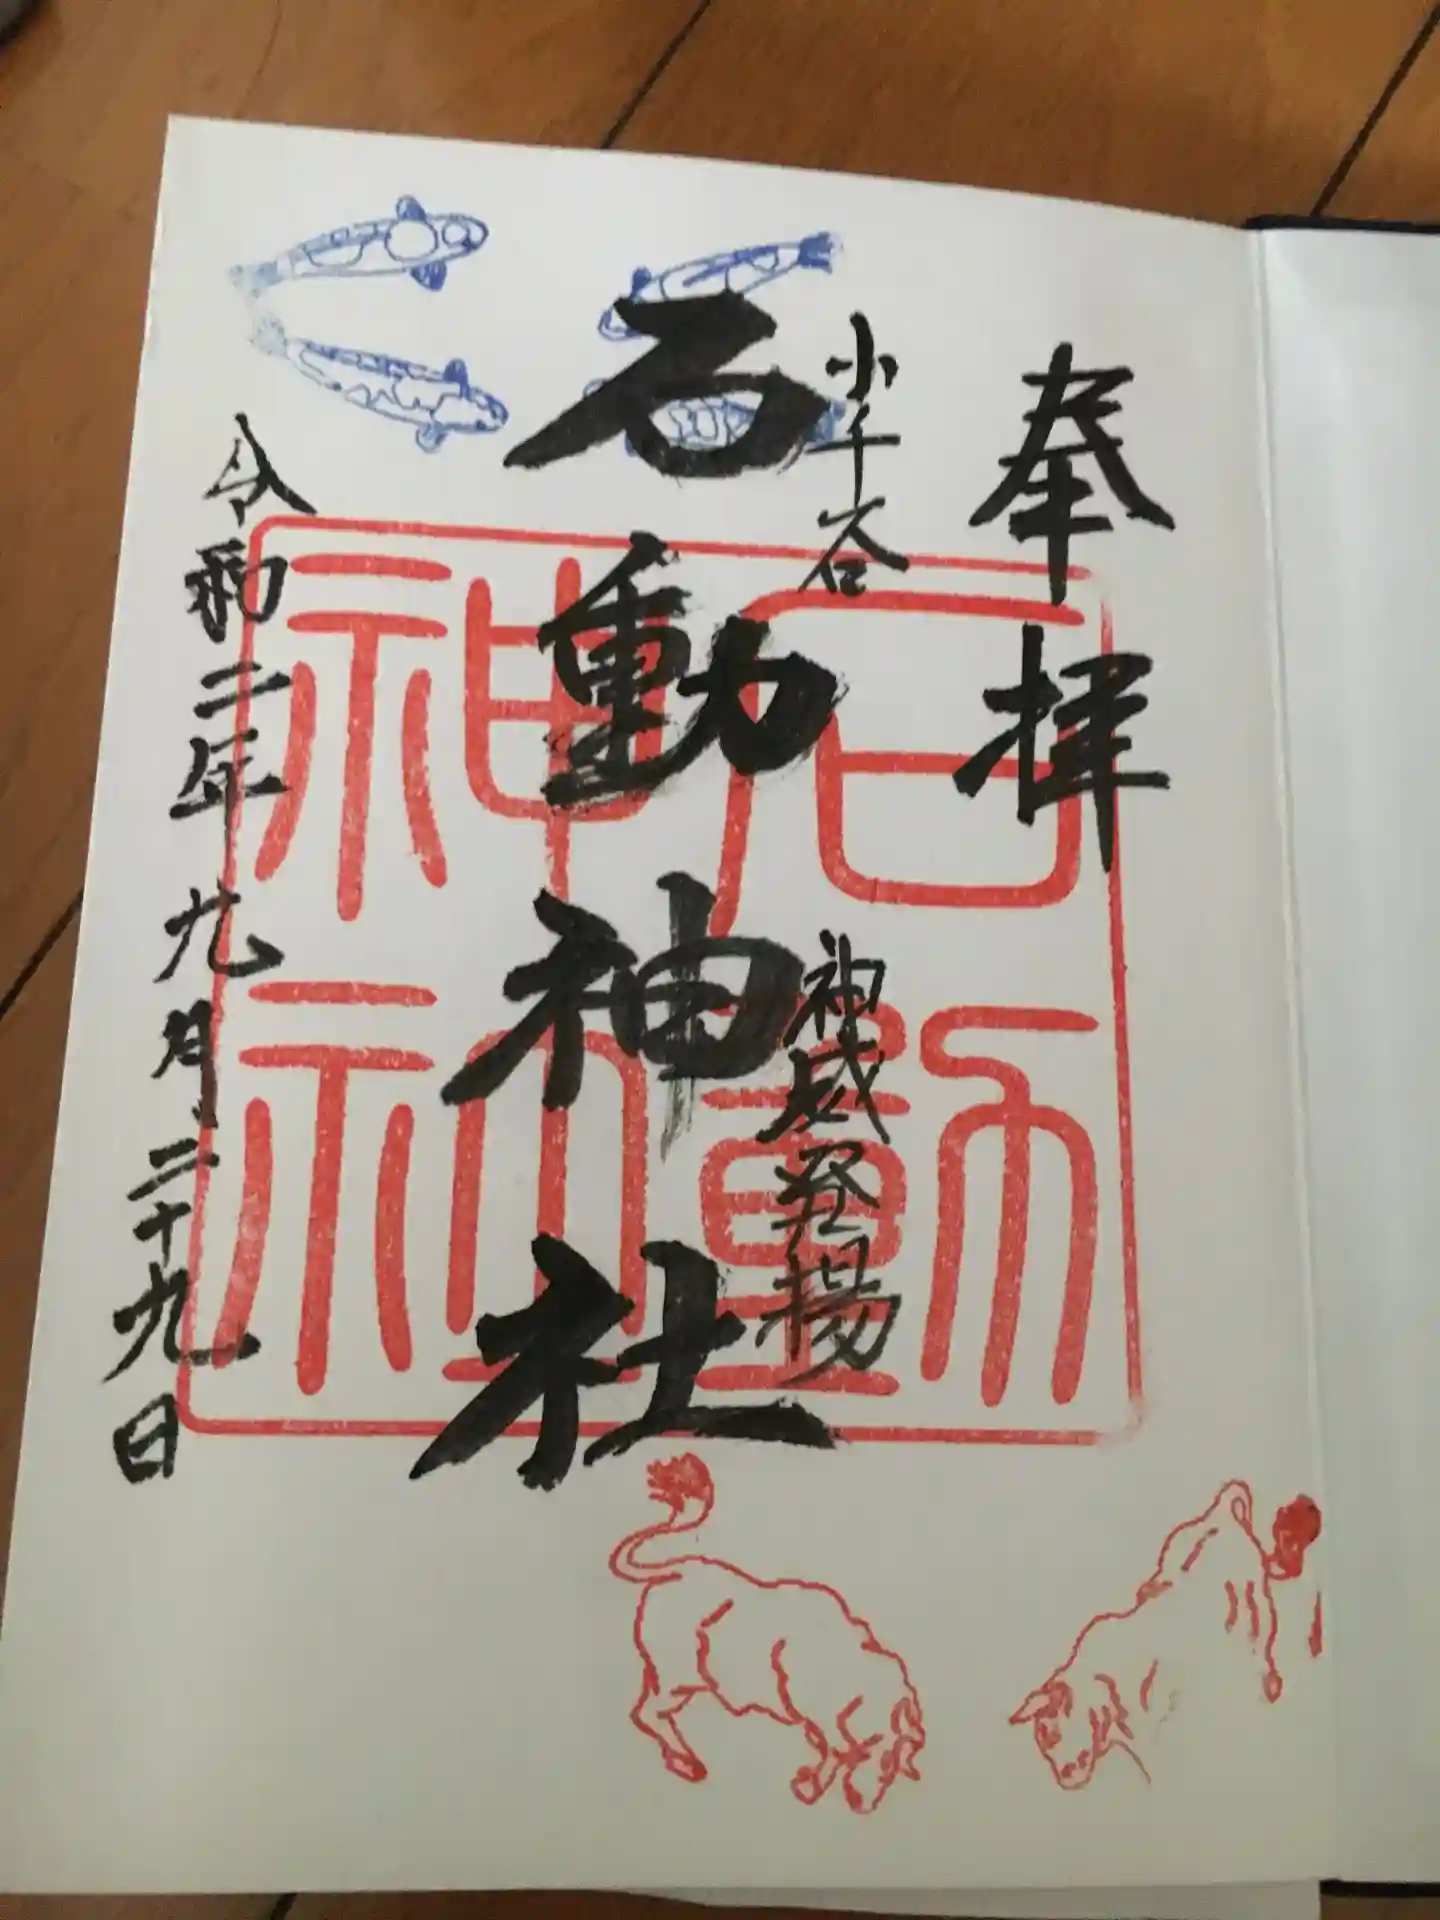 奉拝
小千谷
神威発揚
石動神社
令和二年九月二十九日
石動
神社